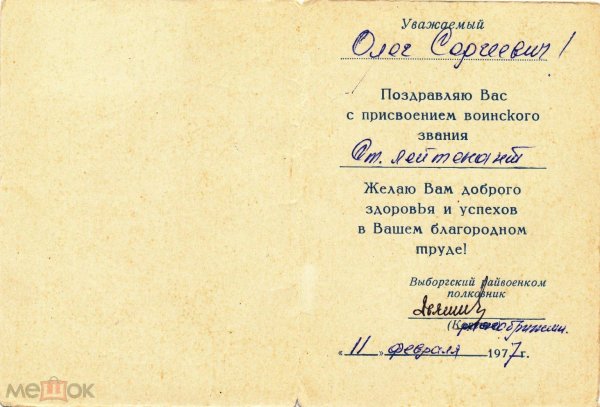 Уважаемый
Олег Сергеевич!
Поздравляю Вас
с присвоением воинского
звания
Ст. лейтенант
Желаю Вам доброго
здоровья и успехов
в Вашем благородном
труде!
Выборгский райвоенком
полковник
"11" февраля 1977 г.
мешок